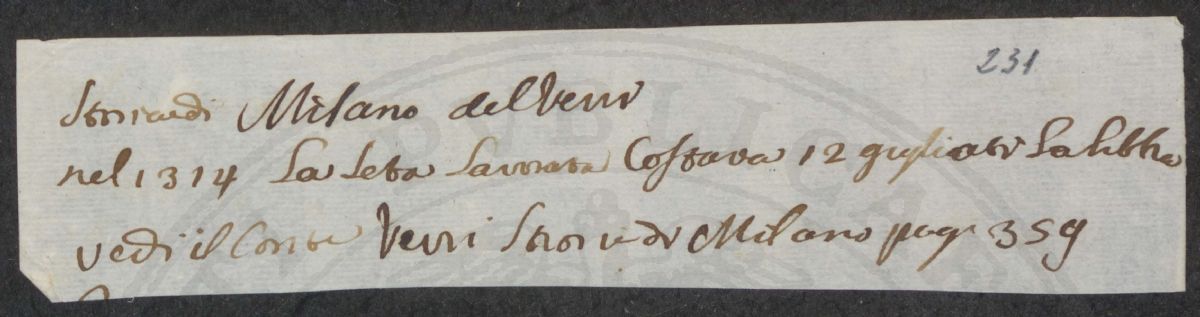 231
Storia di Milano del Verri
nel 1314 La Seta Lavorata Costava 12 gigliati La libbra
vedi il Conte Verri Storia di Milano pag. 359
PVBLICA